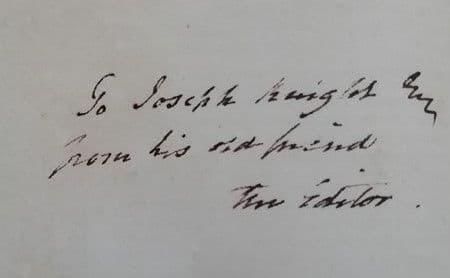 To Joseph Knight Esq
from his old friend
the Editor.